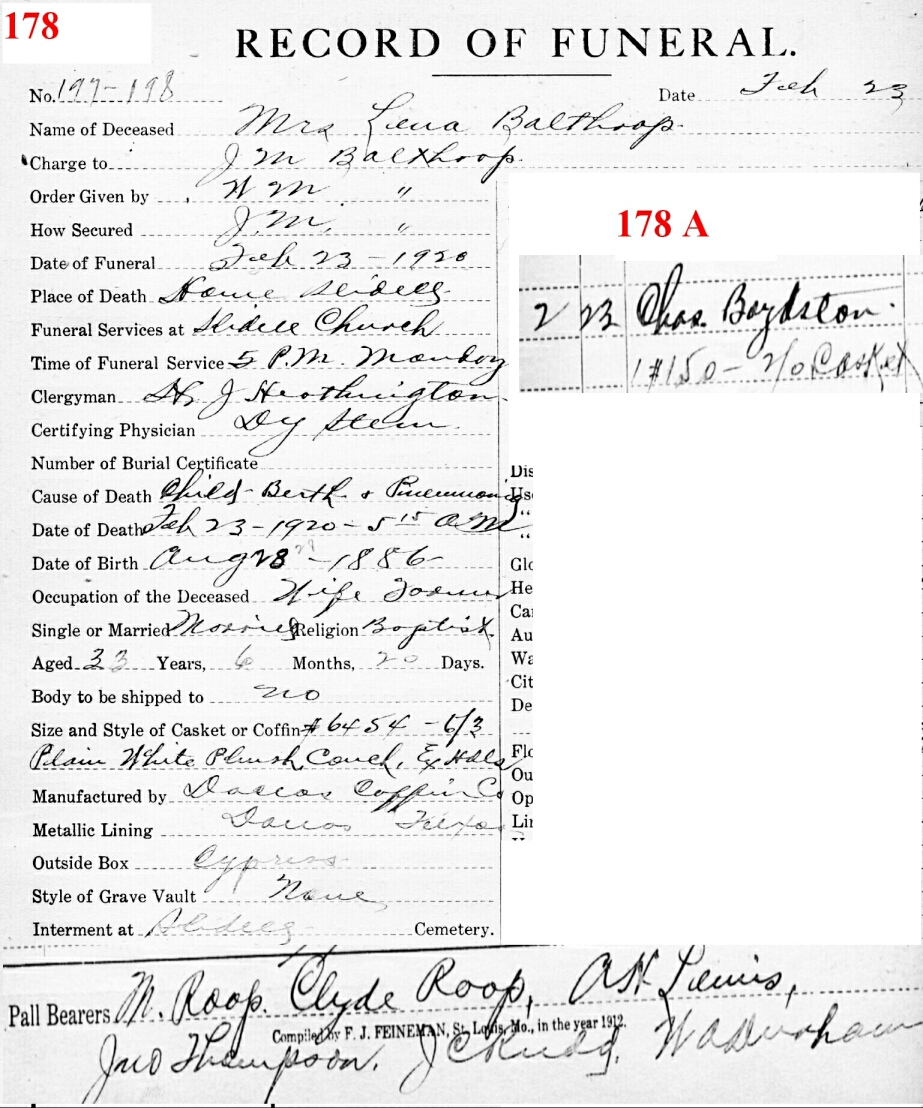 178
RECORD OF FUNERAL.
No. 197-198 Date Feb 23
Name of Deceased Mrs Lena Balthrop
Charge to J M Balthrop.
Order Given by W M "
How Secured J. M. "
Date of Funeral Feb 23-1920
Place of Death Home Slidell
Funeral Services at Slidell Church
Time of Funeral Service 5 P.M. Monday
Clergyman J
Certifying Physician
Number of Burial Certificate
Cause of Death Child-Berth & Pneumonia
Date of Death Feb 23-1920-5 15 AM
Date of Birth Aug 28 -1886
Occupation of the Deceased Wife Farmer
Single or Married Married Religion Baptist
Aged 33 Years, 6 Months, 20 Days.
Body to be shipped to no
Size and Style of Casket or Coffin #6454 - 6/3
Plain White Plush Couch, Ex Hdls
Manufactured by Dallas Coffin Co
Metallic Lining Dallas Texas
Outside Box Cypress
Style of Grave Vault None
Interment at Slidell Cemetery.
178 A
2 23 Chas. Boydston.
1 #150 - Casket
Dis
Use
"
"
Glo
He
Car
Au
Wa
Cit
De
Flo
Ou
Op
Lin
Pall Bearers M. Roop. Clyde Roop, Lewis,
Compiled by F. J. FEINEMAN, St. Louis, Mo., in the year 1912.
Jno Thompson. J C